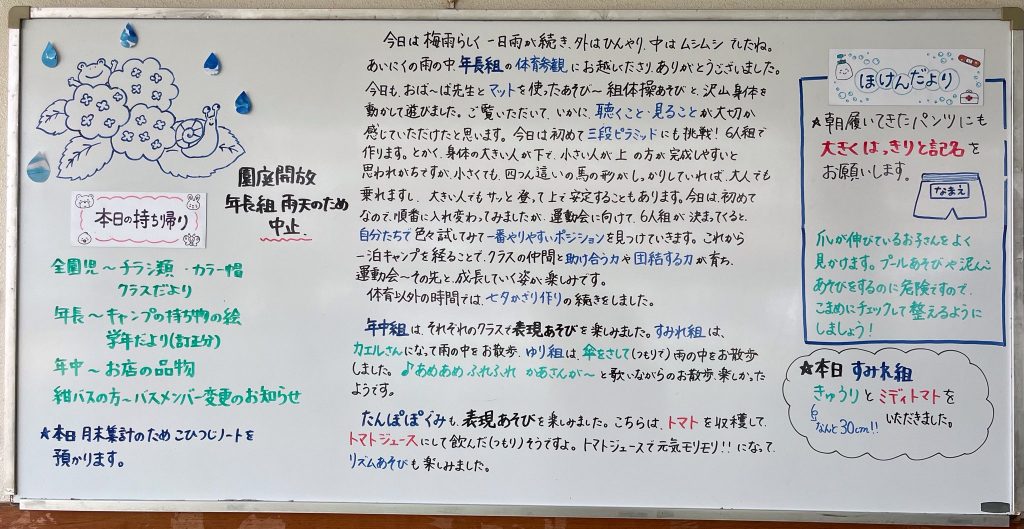 園庭開放
年長組 雨天のため
中止.
本日の持ち帰り
全園児～チラシ類・カラー帽
クラスだより
年長～キャンプの持ち物の絵
学年だより(訂正分)
年中～お店の品物
紺バスの方～バスメンバー変更のお知らせ
★本日 月末集計のため こひつじノートを
預かります。
今日は 梅雨らしく 一日雨が続き、外はひんやり、中は ムシムシ でしたね。
あいにくの雨の中、年長組の体育参観にお越しくださり、ありがとうございました。
今日も、おば～ば先生と マットを使ったあそび～ 組体操あそびと、沢山身体を
動かして遊びました。ご覧いただいて、いかに、聴くこと・見ることが大切か
感じていただけたと思います。今日は初めて 三段ピラミッドにも挑戦！6人組で
作ります。とかく、身体の大きい人が下で、小さい人が上 の方が 完成しやすいと
思われがちですが、小さくても、四つん這いの馬の形がしっかりしていれば、大人でも
乗れますし、大きい人でも サッと登って上で安定することもあります。今日は、初めて
なので、順番に入れ変わってみましたが、運動会に向けて、6人組が決まってくると、
自分たちで 色々試してみて 一番やりやすいポジションを見つけていきます。これから
一泊キャンプを経ることで、クラスの仲間と助け合う力や団結する力が育ち、
運動会～その先と、成長していく姿が楽しみです。
体育以外の時間では、七夕かざり作りの続きをしました。
年中組は、それぞれのクラスで表現あそびを楽しみました。すみれ組は、
カエルさんになって雨の中をお散歩、ゆり組は、傘をさして(つもりで)雨の中をお散歩
しました。♪あめあめ ふれふれ かあさんが～ と歌いながらのお散歩、楽しかった
ようです。
たんぽぽぐみも、表現あそびを楽しみました。こちらは、トマトを収穫して、
トマトジュースにして飲んだ(つもり)そうですよ。トマトジュースで元気モリモリ!! になって、
リズムあそびも楽しみました。
ほけんだより
★朝履いてきたパンツにも
大きくはっきりと記名を
お願いします。
なまえ
爪が伸びているお子さんをよく
見かけます。プールあそびや泥んこ
あそびをするのに危険ですので、
こまめにチェックして整えるように
しましょう！
★本日 すみれ組
きゅうり と ミディトマトを
なんと30cm!! いただきました。